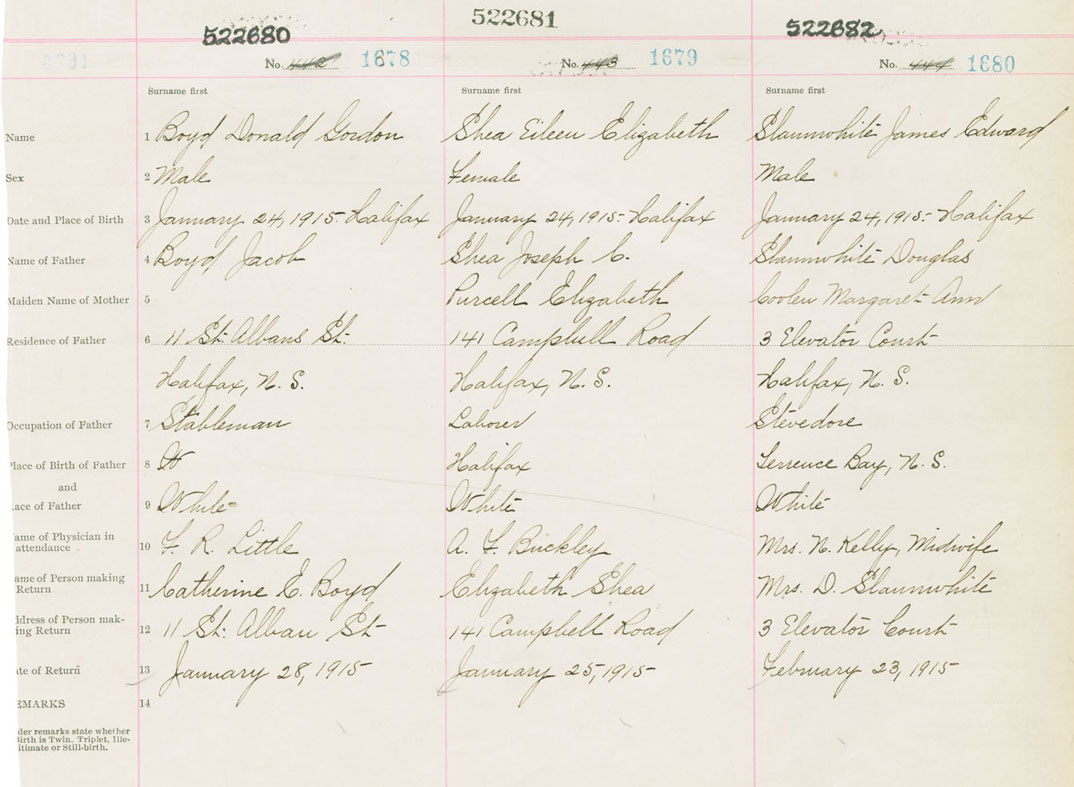 522680 522681 522682
No. 442 1678 No. 443 1679 No. 444 1680
Surname first Surname first Surname first
Name 1 Boyd Donald Gordon Shea Eileen Elizabeth Slaunwhite James Edward
Sex 2 Male Female Male
Date and Place of Birth 3 January 24, 1915- Halifax January 24, 1915- Halifax January 24, 1915- Halifax
Name of Father 4 Boyd Jacob Shea Joseph C. Slaunwhite Douglas
Maiden Name of Mother 5 Purcell Elizabeth Coolen Margaret Ann
Residence of Father 6 11 St. Albans St. 141 Campbell Road 3 Elevator Court
Halifax, N. S. Halifax, N. S. Halifax, N. S.
Occupation of Father 7 Stableman Laborer Stevedore
lace of Birth of Father 8 Halifax Terrence Bay, N. S.
and
ace of Father 9 White White White
ame of Physician in
attendance 10 F. R. Little A. F. Buckley Mrs. N. Kelly, Midwife
ame of Person making
Return 11 Catherine E. Boyd Elizabeth Shea Mrs. D. Slaunwhite
ddress of Person mak-
ing Return 12 11 St. Alban St. 141 Campbell Road 3 Elevator Court
te of Return 13 January 28, 1915 January 25, 1915 February 23, 1915
EMARKS 14
der remarks state whether
irth is Twin, Triplet, Ille-
itimate or Still-birth.